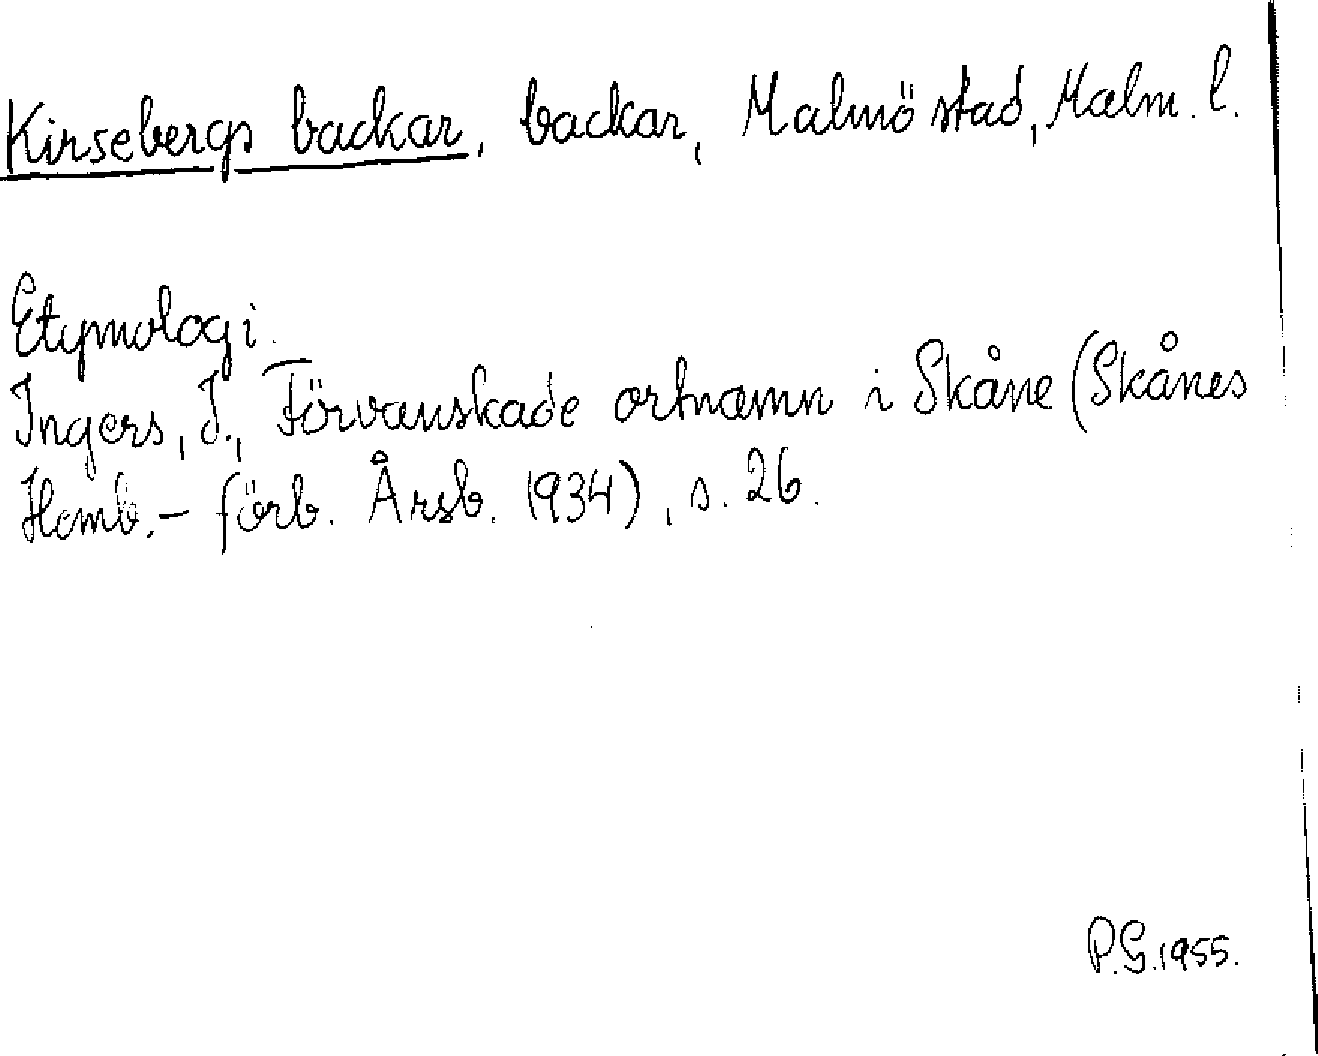 Kirsebergs backar, backar, Malmö stad, Malm. l.
Etymologi.
Ingers, I., Förvanskade ortnamn i Skåne (Skånes
Hemb.- förb. Årsb. 1934), s. 26.
P.G. 1955.